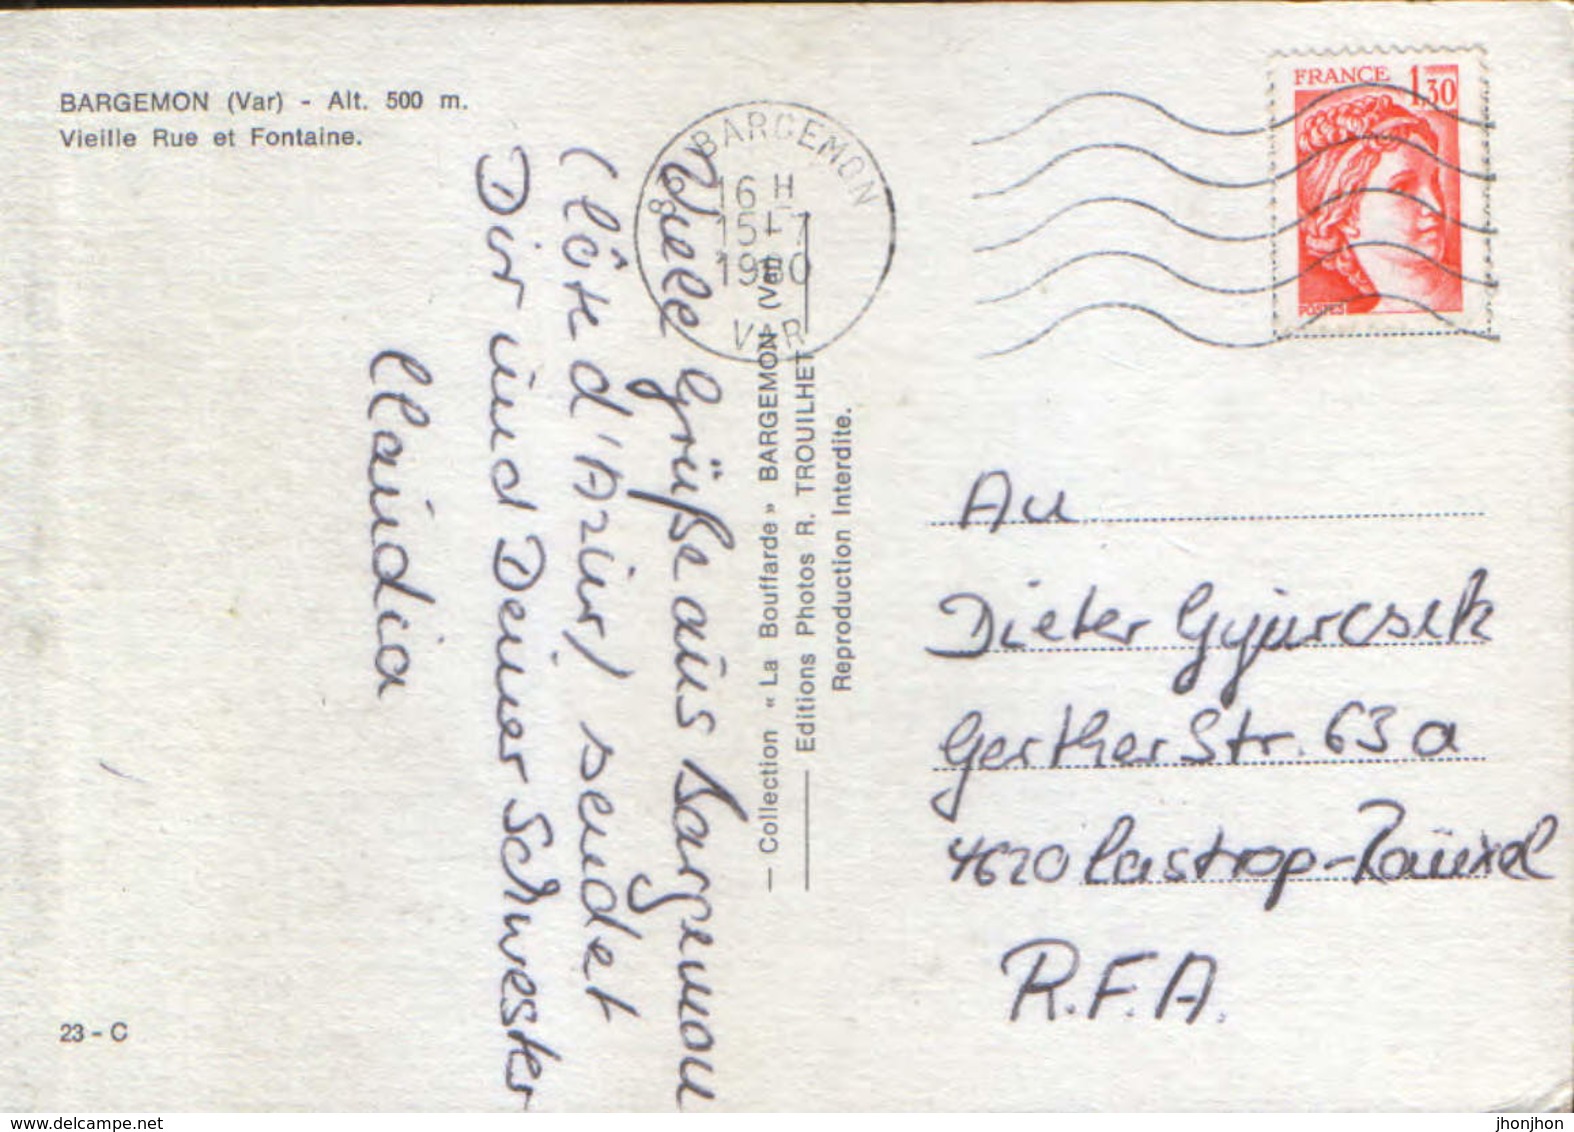 BARGEMON (Var) - Alt. 500 m.
Vieille Rue et Fontaine.
83 BARGEMON
16 H
15 - 7
1980
VAR
FRANCE 1,30
POSTES
Viele Grüße aus Bargemon
(Côte d'Azur) sendet
Dir und Deiner Schwester
Claudia
— Collection « La Bouffarde » BARGEMON (Var) —
Editions Photos R. TROUILHET
Reproduction Interdite.
An
Dieter Gyurcsek
Gerther Str. 63 a
4620 Castrop-Rauxel
R.F.A.
23 - C
www.delcampe.net
jhonjhon